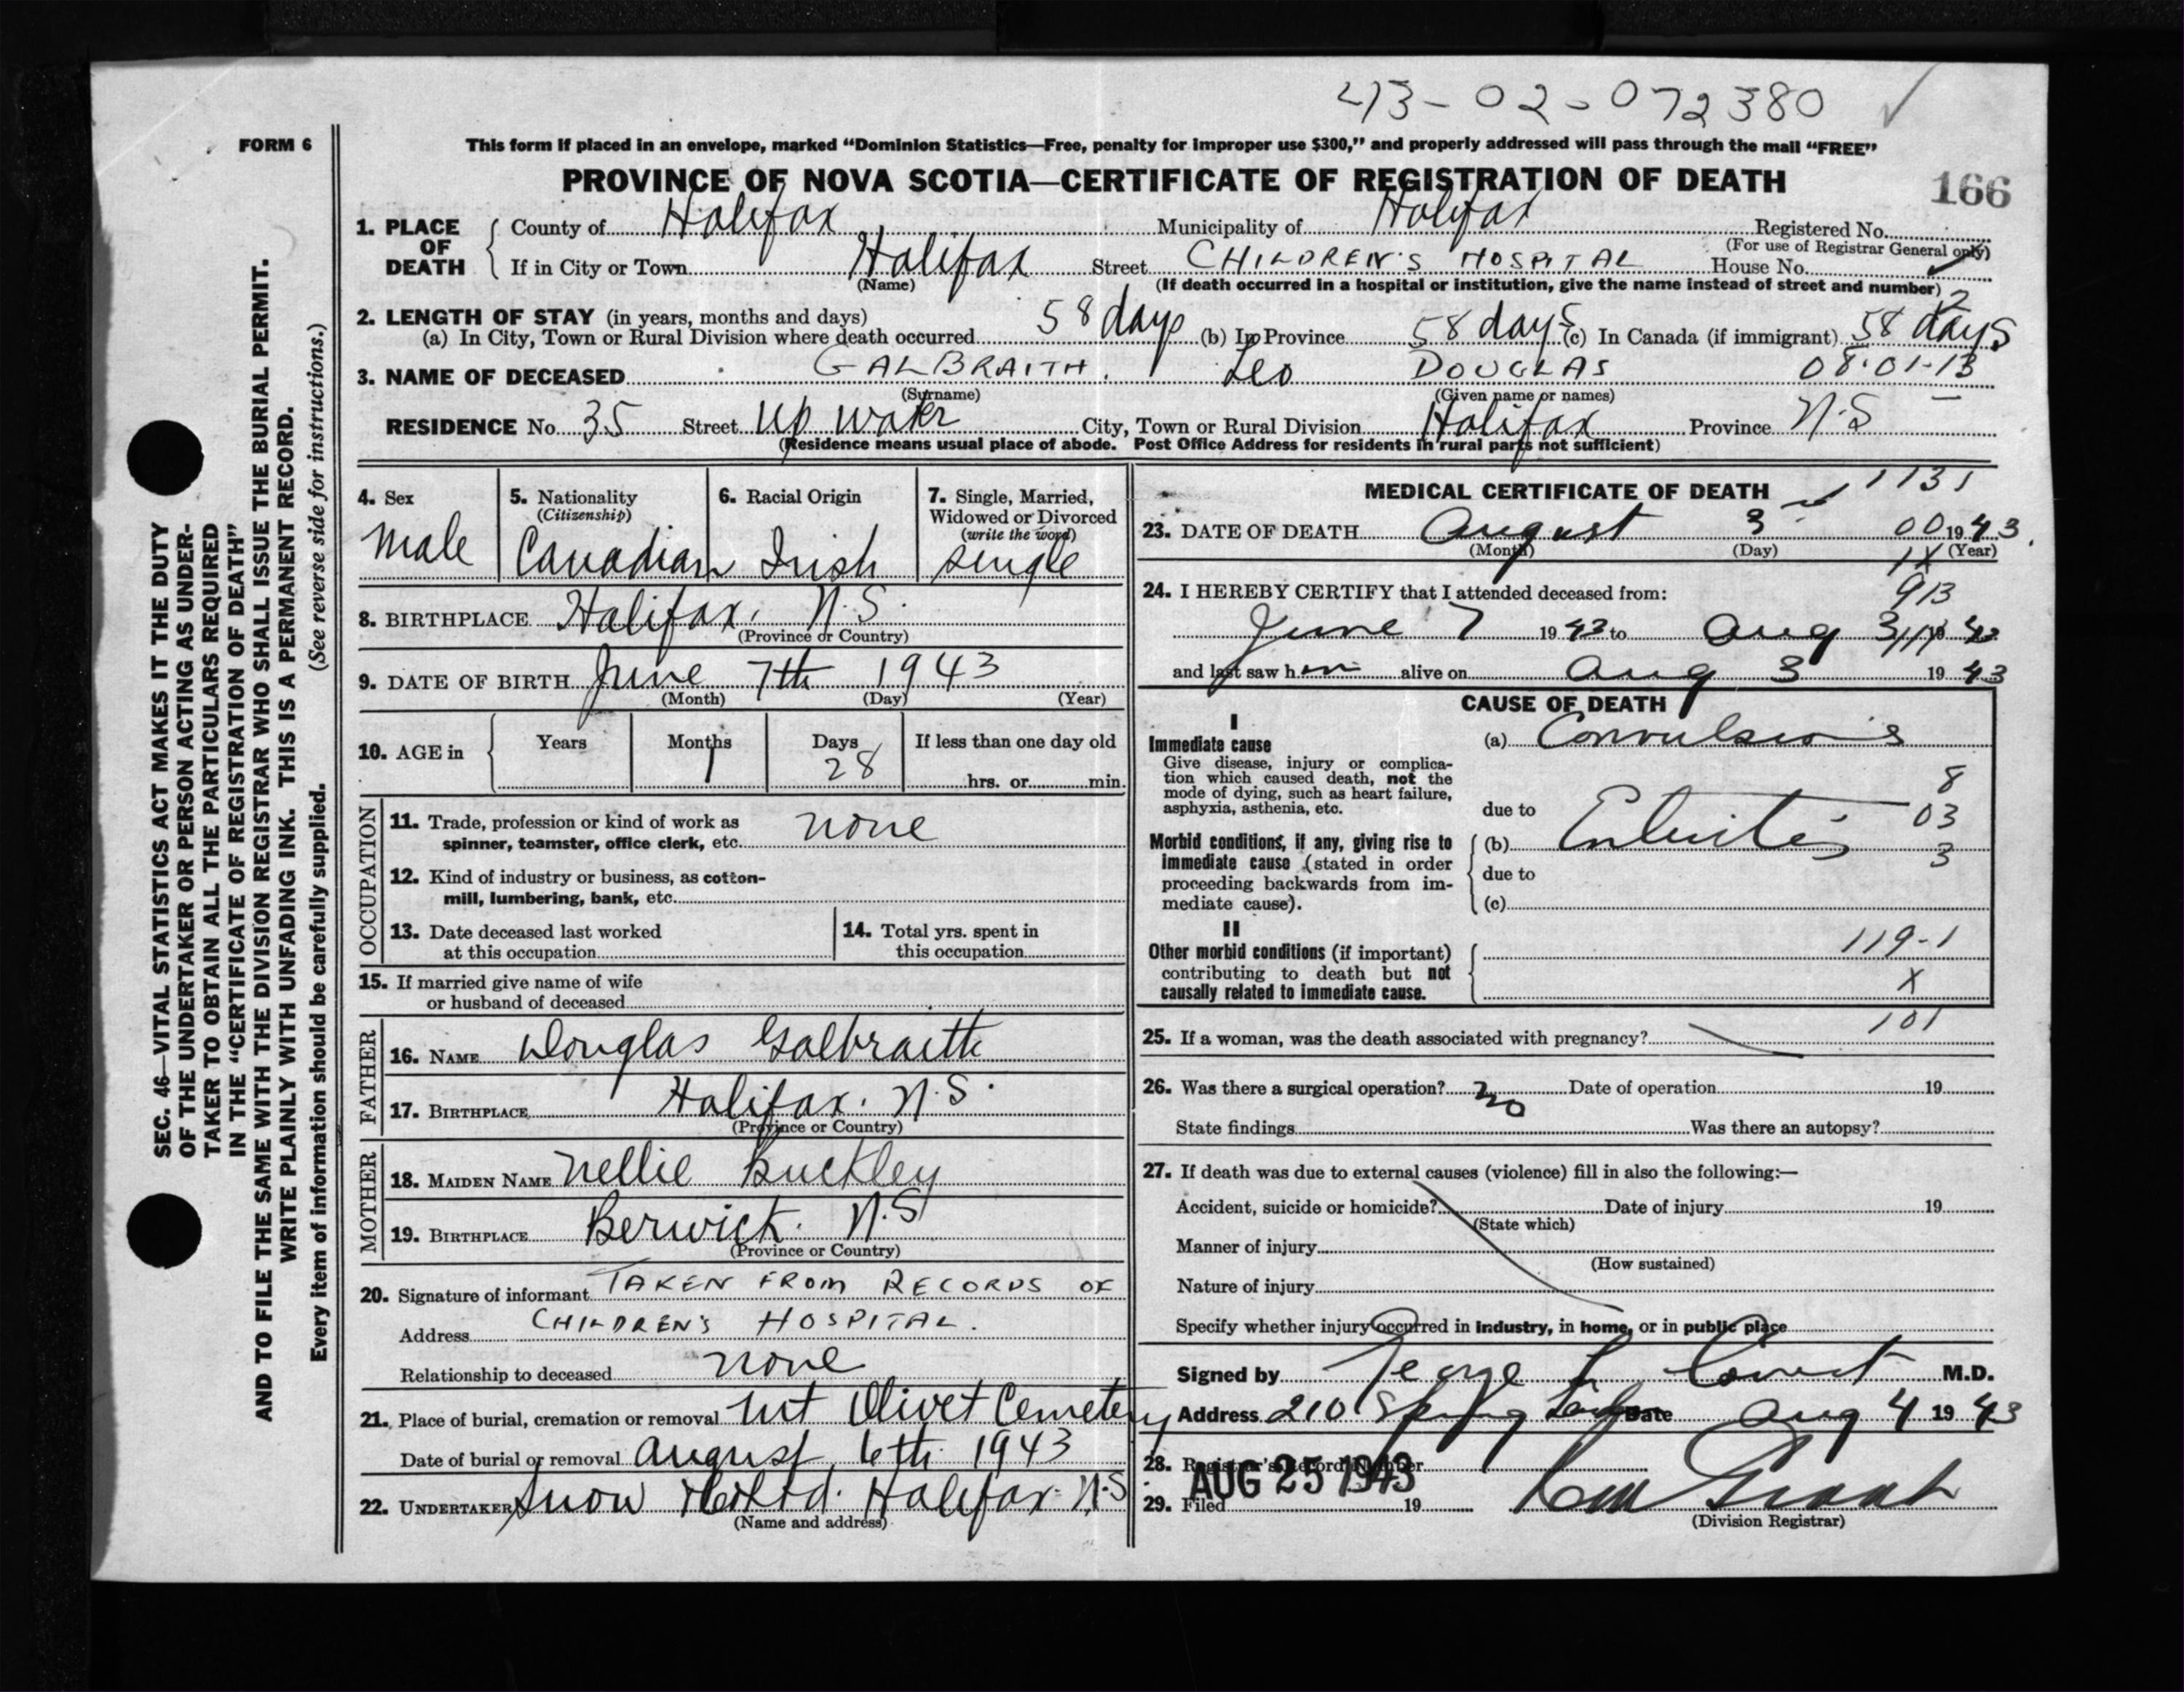 43-02-072380
FORM 6
This form if placed in an envelope, marked "Dominion Statistics—Free, penalty for improper use $300," and properly addressed will pass through the mail "FREE"
PROVINCE OF NOVA SCOTIA—CERTIFICATE OF REGISTRATION OF DEATH
166
1. PLACE OF DEATH
County of Halifax Municipality of Halifax Registered No.
(For use of Registrar General only)
If in City or Town Halifax Street CHILDREN'S HOSPITAL House No.
(Name) (If death occurred in a hospital or institution, give the name instead of street and number)
2. LENGTH OF STAY (in years, months and days)
(a) In City, Town or Rural Division where death occurred 58 days (b) In Province 58 days (c) In Canada (if immigrant) 58 days
2
3. NAME OF DECEASED GALBRAITH. Leo DOUGLAS 08-01-13
(Surname) (Given name or names)
RESIDENCE No. 35 Street Up Water City, Town or Rural Division Halifax Province N.S
(Residence means usual place of abode. Post Office Address for residents in rural parts not sufficient)
4. Sex
Male
5. Nationality
(Citizenship)
Canadian
6. Racial Origin
Irish
7. Single, Married,
Widowed or Divorced
(write the word)
single
8. BIRTHPLACE Halifax. N.S.
(Province or Country)
9. DATE OF BIRTH June 7th 1943
(Month) (Day) (Year)
10. AGE in
Years Months Days If less than one day old
1 28 hrs. or min.
OCCUPATION
11. Trade, profession or kind of work as
spinner, teamster, office clerk, etc. none
12. Kind of industry or business, as cotton-
mill, lumbering, bank, etc.
13. Date deceased last worked
at this occupation
14. Total yrs. spent in
this occupation
15. If married give name of wife
or husband of deceased
FATHER
16. NAME Douglas Galbraith
17. BIRTHPLACE Halifax. N.S.
(Province or Country)
MOTHER
18. MAIDEN NAME Nellie Buckley
19. BIRTHPLACE Berwick. N.S
(Province or Country)
20. Signature of informant TAKEN FROM RECORDS OF
Address CHILDREN'S HOSPITAL.
Relationship to deceased none
21. Place of burial, cremation or removal Mt Olivet Cemetery
Date of burial or removal August 6th 1943
22. UNDERTAKER Snow & Co Ltd. Halifax N.S
(Name and address)
MEDICAL CERTIFICATE OF DEATH
1131
23. DATE OF DEATH August 3 00 1943.
(Month) (Day) (Year)
1X
24. I HEREBY CERTIFY that I attended deceased from:
913
June 7 1943 to Aug 3 19 43
and last saw him alive on Aug 3 1943
CAUSE OF DEATH
I
Immediate cause
Give disease, injury or complica-
tion which caused death, not the
mode of dying, such as heart failure,
asphyxia, asthenia, etc.
(a) Convulsions
8
due to
03
Morbid conditions, if any, giving rise to
immediate cause (stated in order
proceeding backwards from im-
mediate cause).
(b) Enteritis
3
due to
(c)
II
Other morbid conditions (if important)
contributing to death but not
causally related to immediate cause.
119-1
X
101
25. If a woman, was the death associated with pregnancy?
26. Was there a surgical operation? no Date of operation 19
State findings Was there an autopsy?
27. If death was due to external causes (violence) fill in also the following:—
Accident, suicide or homicide? Date of injury 19
(State which)
Manner of injury
(How sustained)
Nature of injury
Specify whether injury occurred in industry, in home, or in public place
Signed by George M.D.
Address 210 Spring Date Aug 4 1943
28. Registrar's Record Number
AUG 25 1943
29. Filed 19
(Division Registrar)
SEC. 46—VITAL STATISTICS ACT MAKES IT THE DUTY
OF THE UNDERTAKER OR PERSON ACTING AS UNDER-
TAKER TO OBTAIN ALL THE PARTICULARS REQUIRED
IN THE "CERTIFICATE OF REGISTRATION OF DEATH"
AND TO FILE THE SAME WITH THE DIVISION REGISTRAR WHO SHALL ISSUE THE BURIAL PERMIT.
WRITE PLAINLY WITH UNFADING INK. THIS IS A PERMANENT RECORD.
Every item of information should be carefully supplied. (See reverse side for instructions.)